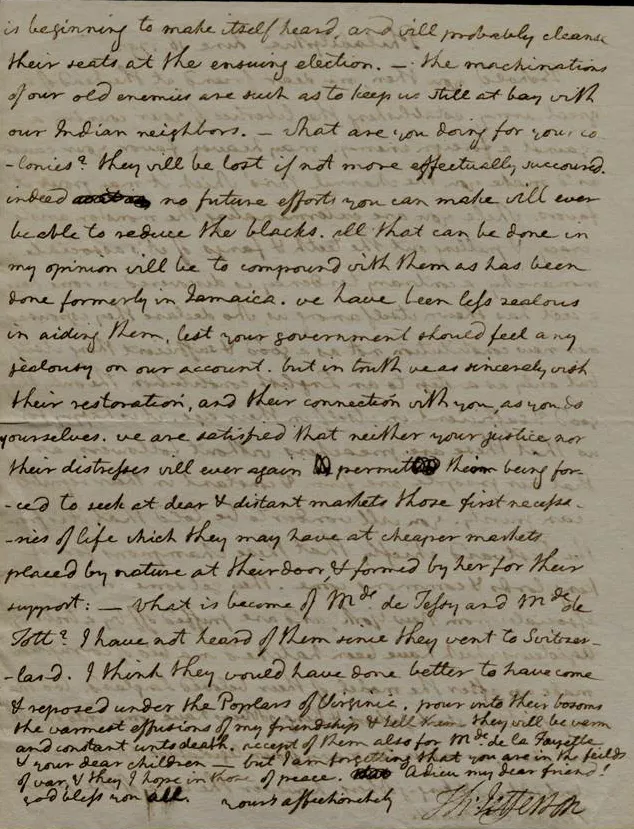 is beginning to make itself heard, and will probably cleanse
their seats at the ensuing election. — the machinations
of our old enemies are such as to keep us still at bay with
our Indian neighbors. — what are you doing for your co
-lonies? they will be lost if not more effectually succoured.
indeed no future efforts you can make will ever
be able to reduce the blacks. all that can be done in
my opinion will be to compound with them as has been
done formerly in Jamaica. we have been less zealous
in aiding them, lest your government should feel any
jealousy on our account. but in truth we as sincerely wish
their restoration, and their connection with you, as you do
yourselves. we are satisfied that neither your justice nor
their distresses will ever again permit their being for-
-ced to seek at dear & distant markets those first necessa-
-ries of life which they may have at cheaper markets
placed by nature at their door, & formed by her for their
support: — what is become of Mde de Tessy and Mde de
Tott? I have not heard of them since they went to Switzer-
-land. I think they would have done better to have come
& reposed under the Poplars of Virginia. pour into their bosoms
the warmest effusions of my friendship & tell them they will be warm
and constant unto death. accept of them also for Mde de la Fayette
& your dear children — but I am forgetting that you are in the feilds
of war, & they I hope in those of peace. Adieu my dear friend!
god bless you all. yours affectionately Th: Jefferson